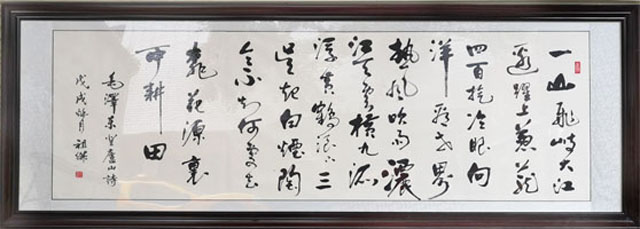 一山飛峙大江
邊躍上葱蘢
四百旋冷眼向
洋看世界
熱風吹雨灑
江天雲橫九派
浮黄鶴浪下三
吳起白煙陶
令不知何處去
桃花源裏
可耕田
毛澤東登廬山詩
戊戌 月 祖